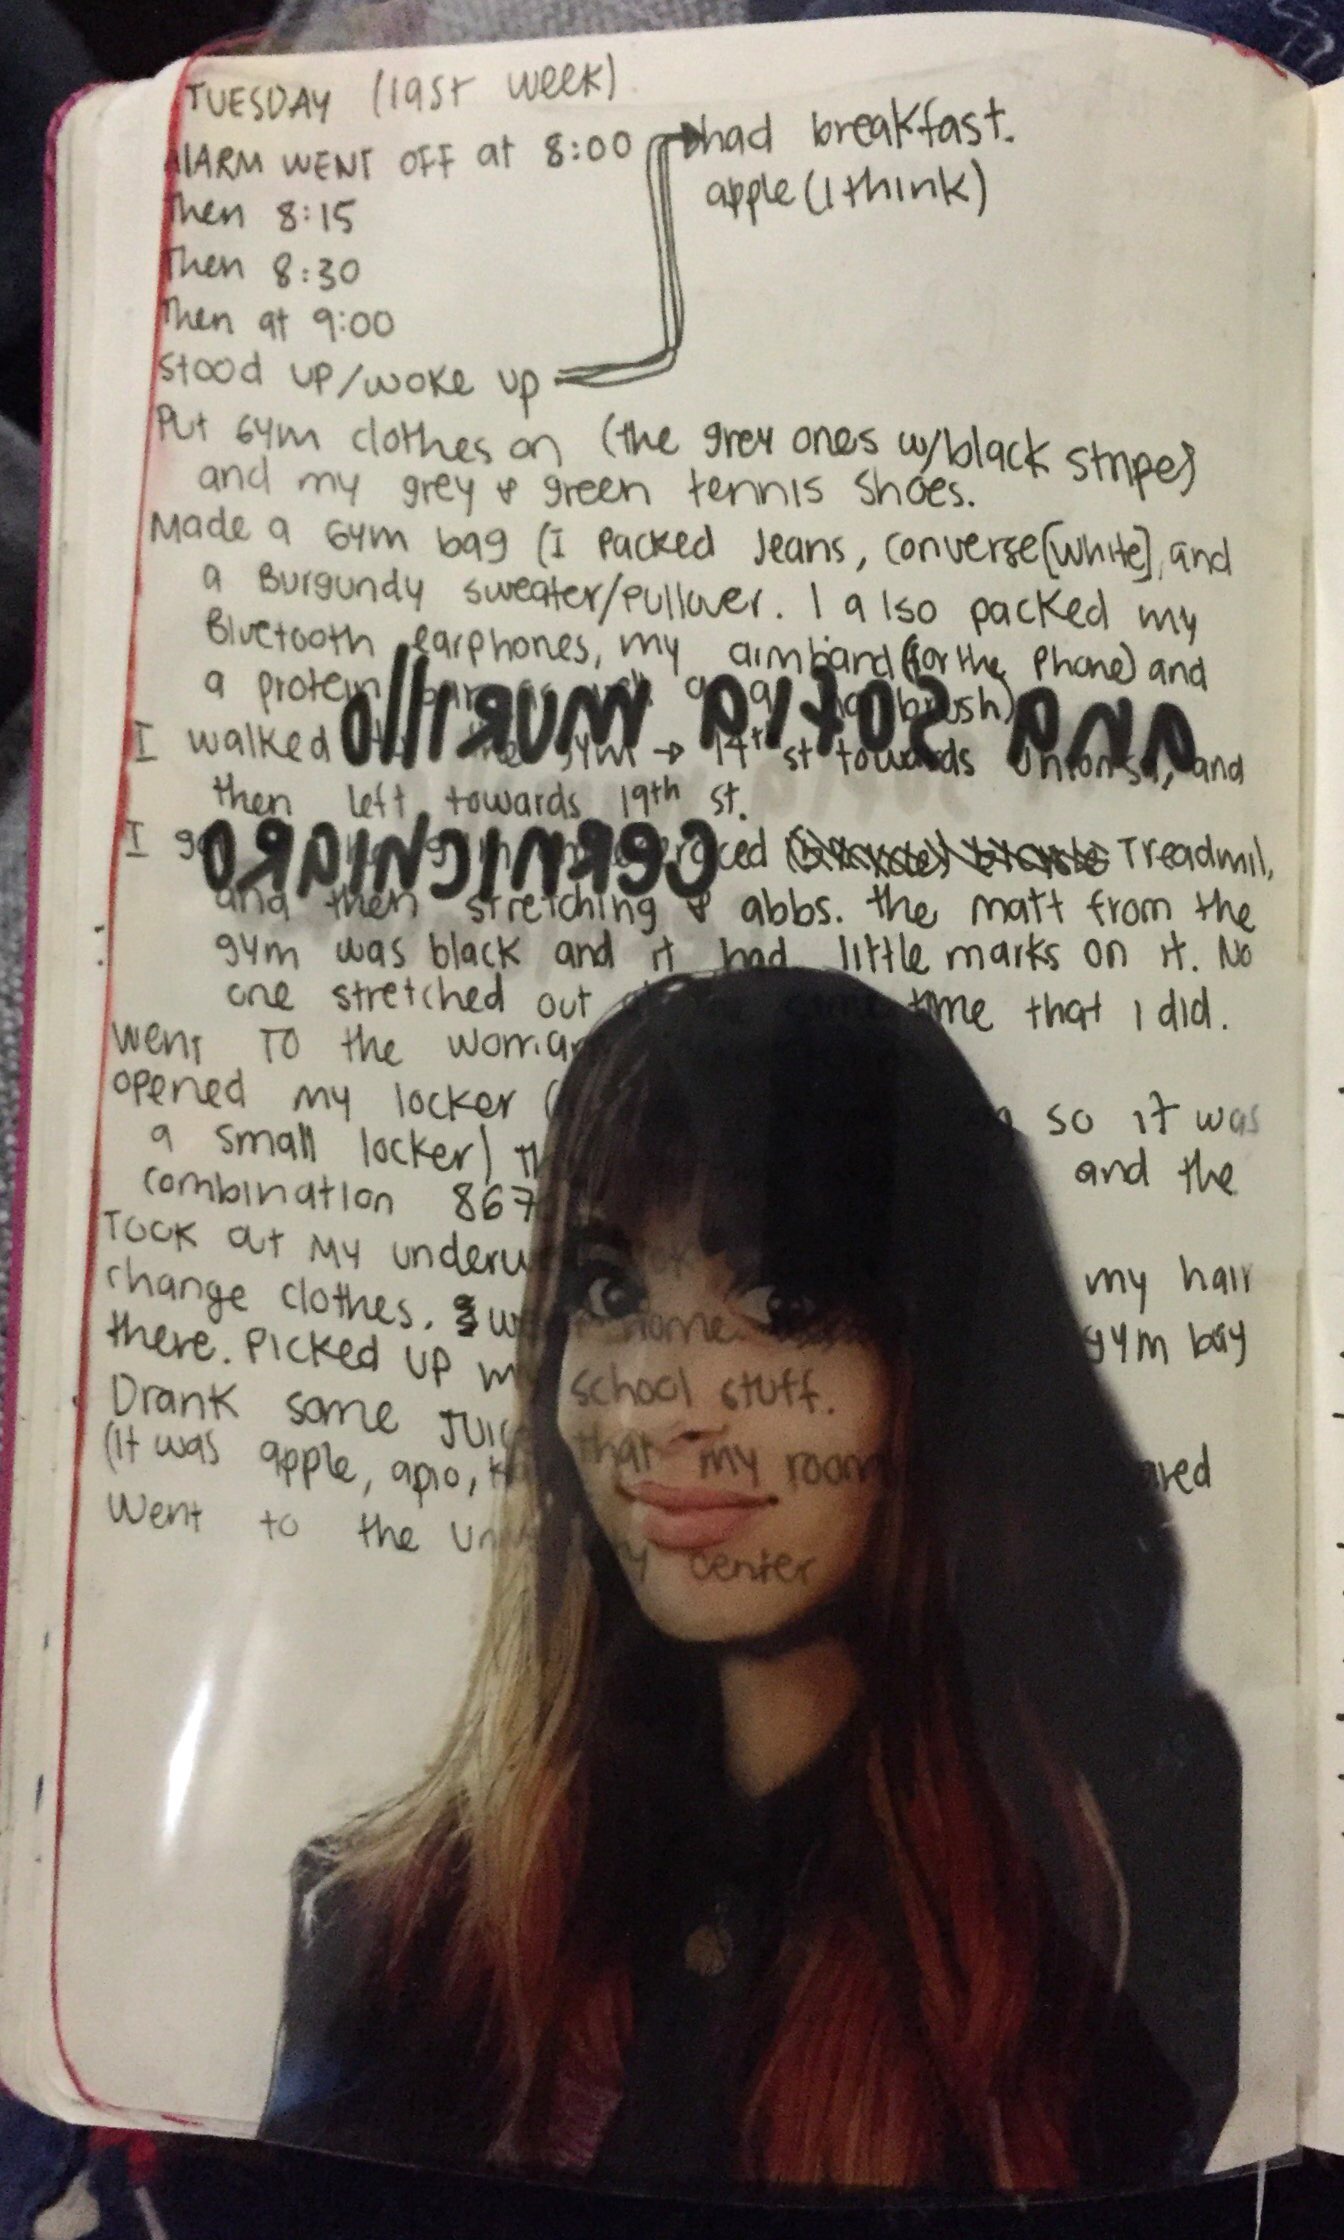 TUESDAY (last week)
ALARM WENT OFF at 8:00
Then 8:15
Then 8:30
Then at 9:00
Stood up/woke up
had breakfast.
apple (I think)
Put Gym clothes on (the grey ones w/black stripes)
and my grey & green tennis shoes.
Made a Gym bag (I Packed Jeans, converse [white], and
a Burgundy sweater/Pullover. I also packed my
Bluetooth earphones, my armband (for the Phone) and
a protein brush)
ana sofia murillo
I walked gym → 14th st towards Union Sq, and
then left towards 19th st.
CERNICHIARO
I Treadmil,
and then stretching & abbs. the matt from the
gym was black and it had little marks on it. No
one stretched out time that I did.
Went TO the
opened my locker ( so it was
a small locker) and the
combination 867
Took out my my hair
change clothes. home. gym bag
there. Picked up my school stuff.
Drank some Juice that my
(It was apple, apio,
Went to the center